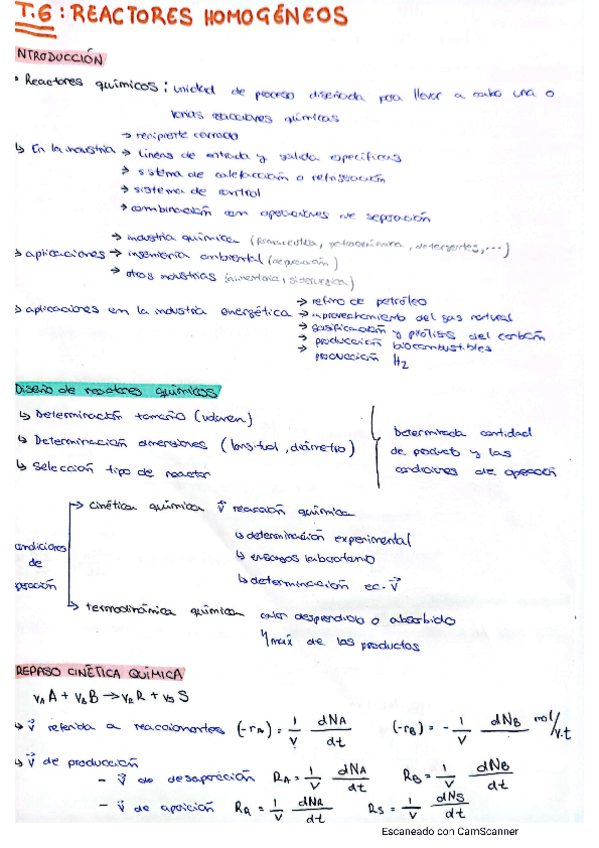 T.6: REACTORES HOMOGÉNEOS
NTRODUCCIÓN
• Reactores químicos: unidad de proceso diseñada para llevar a cabo una o
varias reacciones químicas
→ recipiente cerrado
↳ En la industria → líneas de entrada y salida específicas
→ sistema de calefacción o refrigeración
→ sistema de control
→ combinación con operaciones de separación
→ industria química (farmacéutica, petroquímica, detergentes,...)
→ aplicaciones → ingeniería ambiental (depuración)
→ otras industrias (alimentaria, siderurgica)
→ aplicaciones en la industria energética → refino de petróleo
→ aprovechamiento del gas natural
→ gasificación y pirólisis del carbón
→ producción biocombustibles
producción H₂
Diseño de reactores químicos
↳ Determinación tamaño (volumen)
↳ Determinación dimensiones (longitud, diámetro)
↳ Selección tipo de reactor
Determinada cantidad
de producto y las
condiciones de operación
condiciones
de
peración
→ cinética química v⃗ reacción química
↳ determinación experimental
↳ ensayos laboratorio
↳ determinación ec. v⃗
→ termodinámica química calor desprendido o absorbido
η máx de los productos
REPASO CINÉTICA QUÍMICA
νA A + νB B → νR R + νS S
→ v⃗ referida a reaccionantes (-rA) = 1/V dNA/dt (-rB) = - 1/V dNB/dt mol/v.t
↳ v⃗ de producción
- v⃗ de desaparición RA = 1/V dNA/dt RB = 1/V dNB/dt
- v⃗ de aparición RR = 1/V dNR/dt RS = 1/V dNS/dt
Escaneado con CamScanner